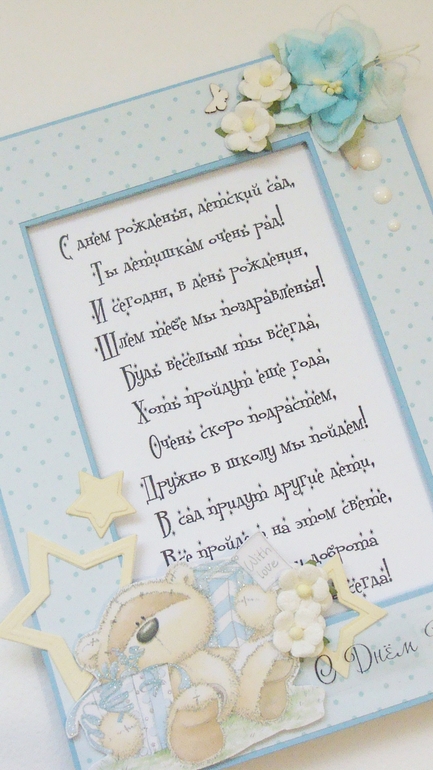 С днем рожденья, детский сад,
Ты детишкам очень рад!
И сегодня, в день рождения,
Шлем тебе мы поздравленья!
Будь веселым ты всегда,
Хоть пройдут еще года,
Очень скоро подрастем,
Дружно в школу мы пойдем!
В сад придут другие дети,
Все на этом свете,
доброта
With love
С Днём